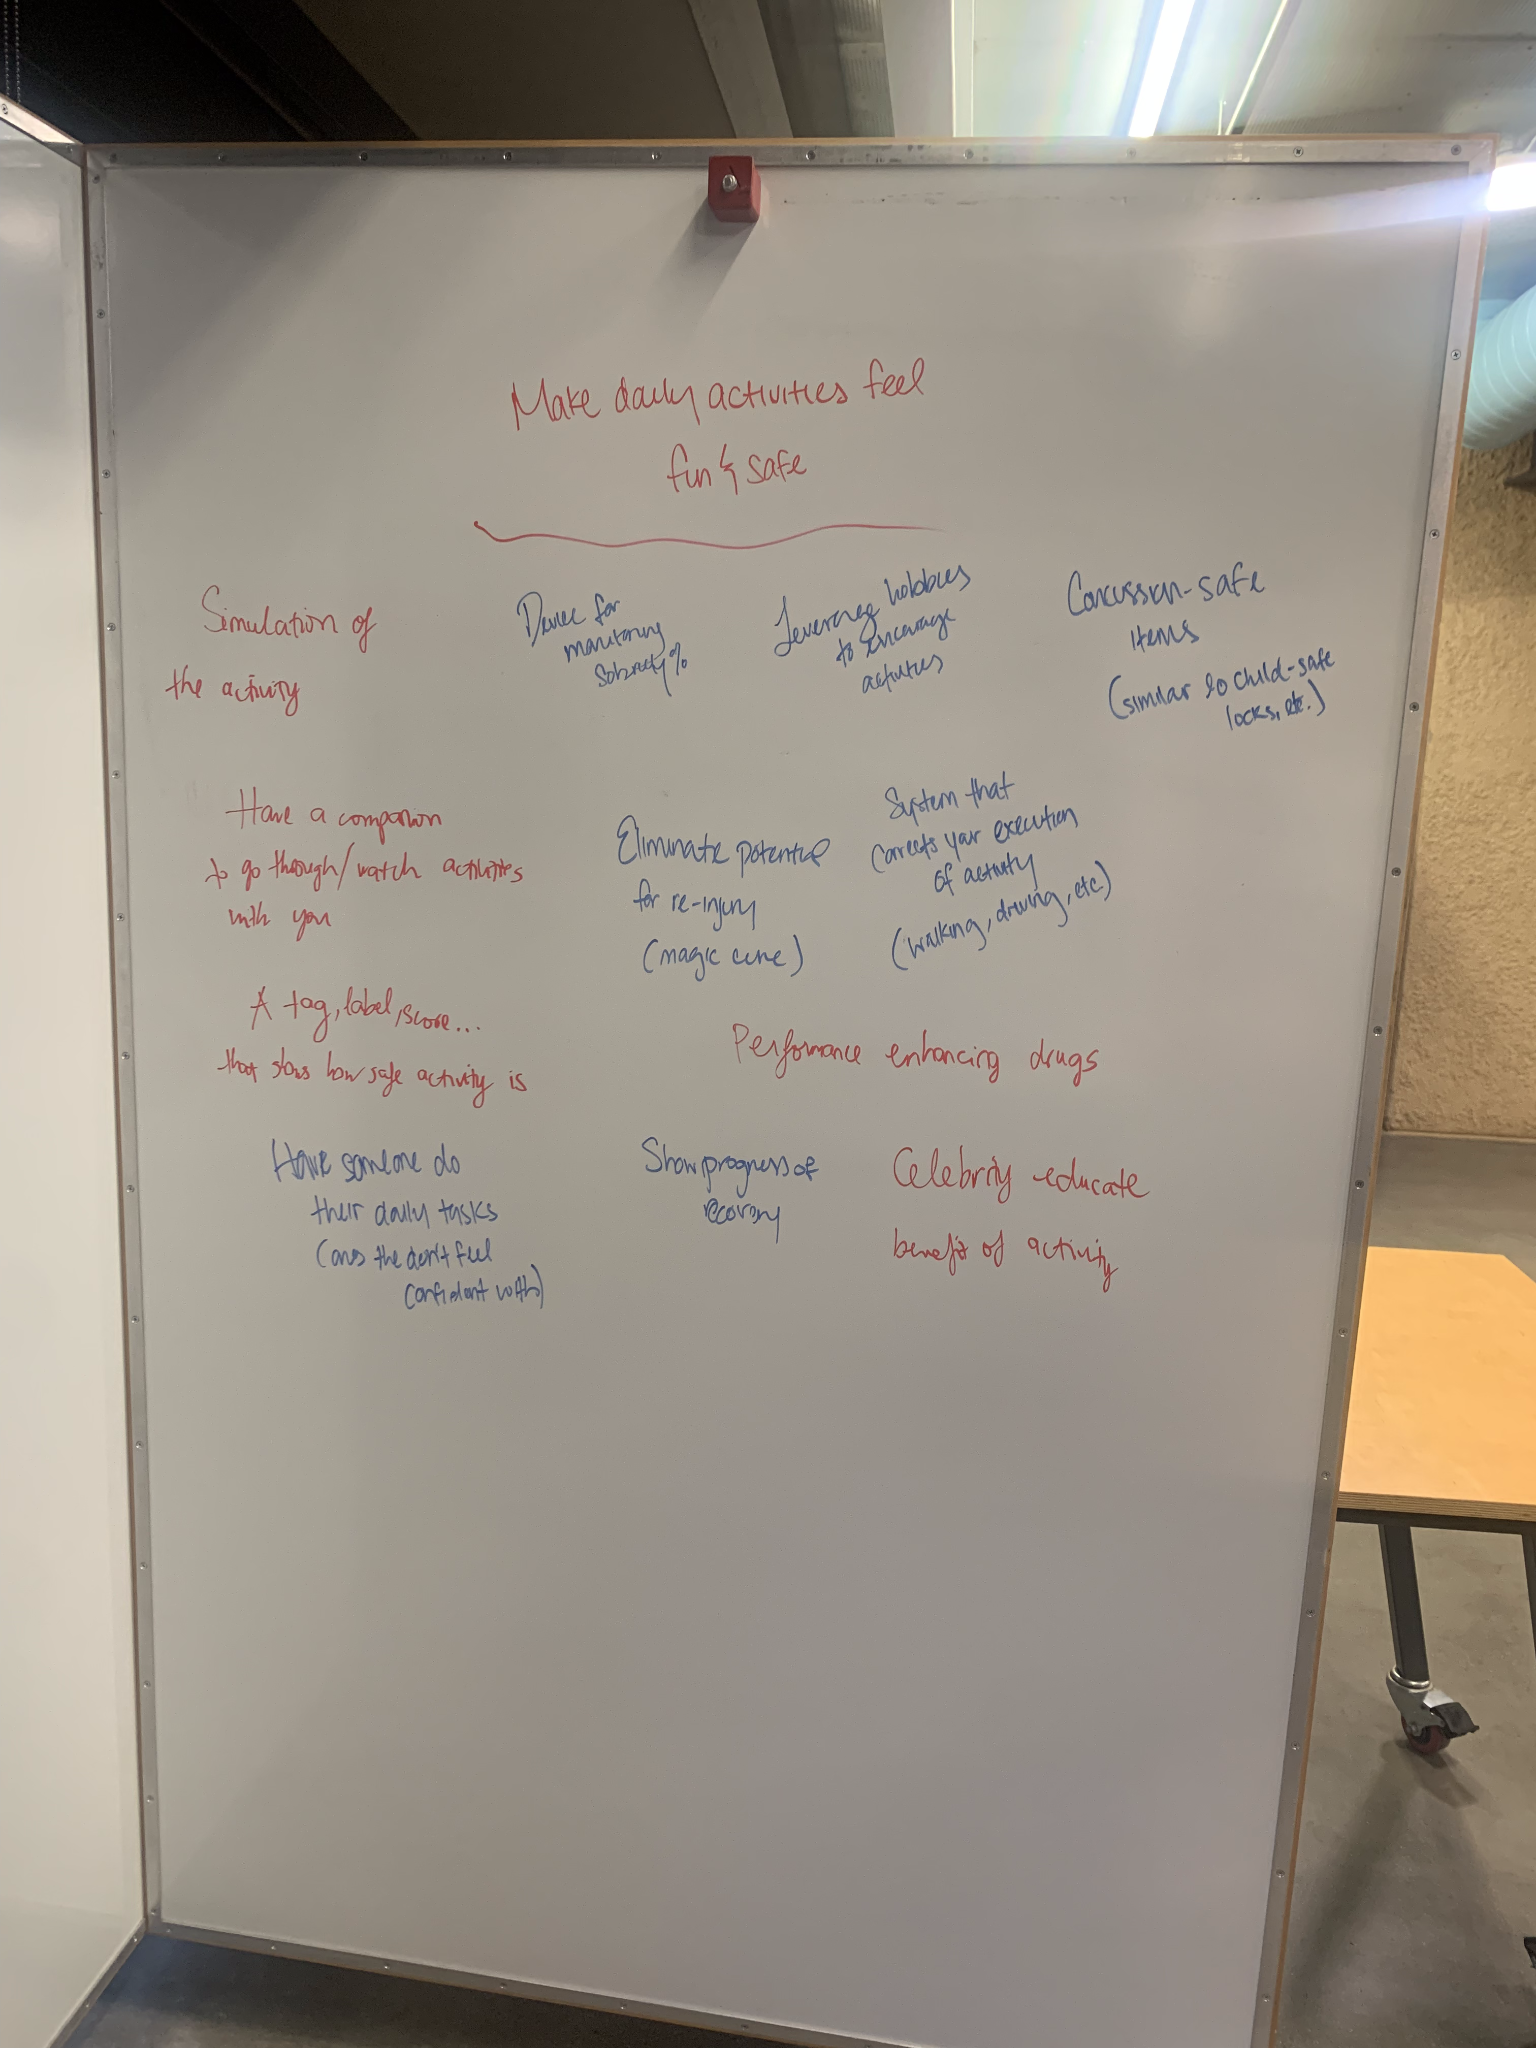 Make daily activities feel
fun & safe
Simulation of
the activity
Device for
monitoring
sobriety %
Leverage hobbies
to encourage
activities
Concussion-safe
items
(similar to child-safe
locks, etc.)
Have a companion
to go through/watch activities
with you
Eliminate potential
for re-injury
(magic cure)
System that
corrects your execution
of activity
(walking, driving, etc)
A tag, label, score...
that shows how safe activity is
Performance enhancing drugs
Have someone do
their daily tasks
(ones the don't feel
confident with)
Show progress of
recovery
Celebrity educate
benefit of activity